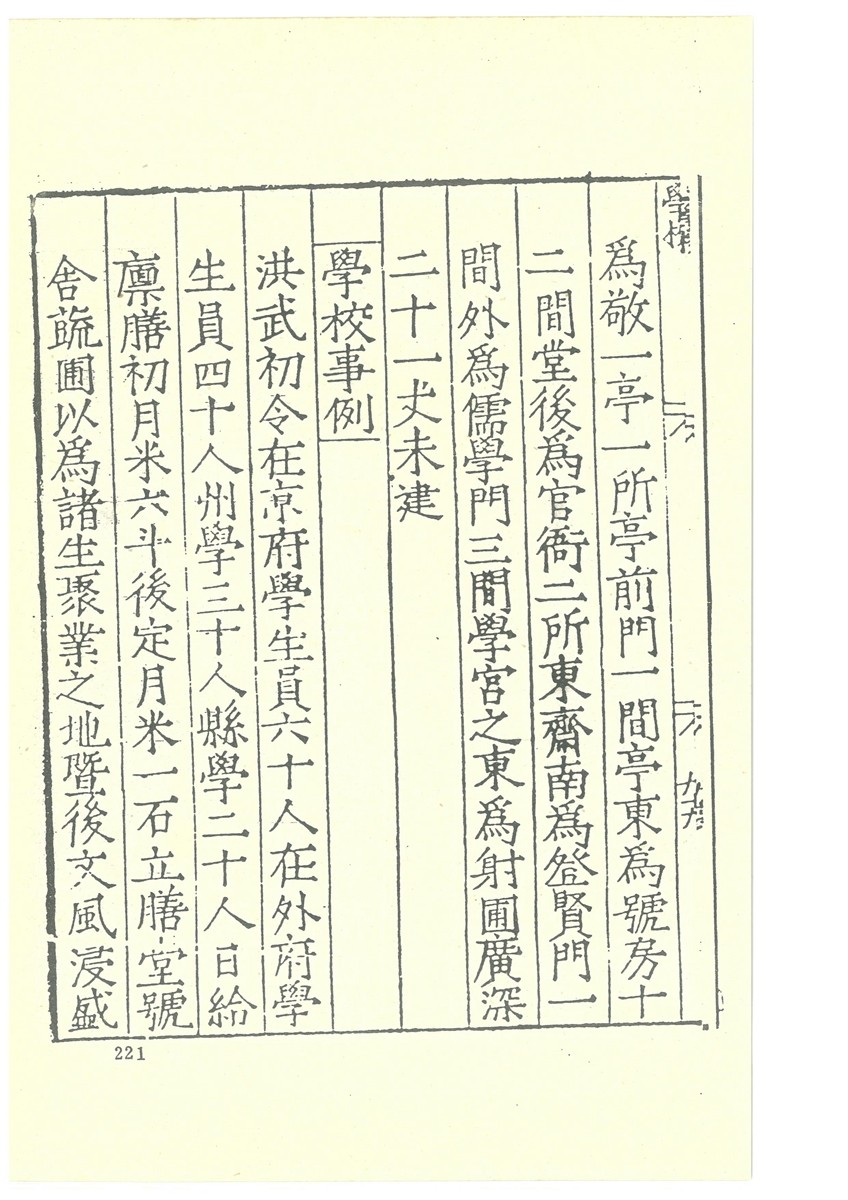 學校
為敬一亭一所亭前門一間亭東為號房十
二間堂後為官衙二所東齋南為登賢門一
間外為儒學門三間學宮之東為射圃廣深
二十一丈未建
學校事例
洪武初令在京府學生員六十人在外府學
生員四十人州學三十人縣學二十人日給
廩膳初月米六斗後定月米一石立膳堂號
舍蔬圃以為諸生聚業之地暨後文風浸盛
221